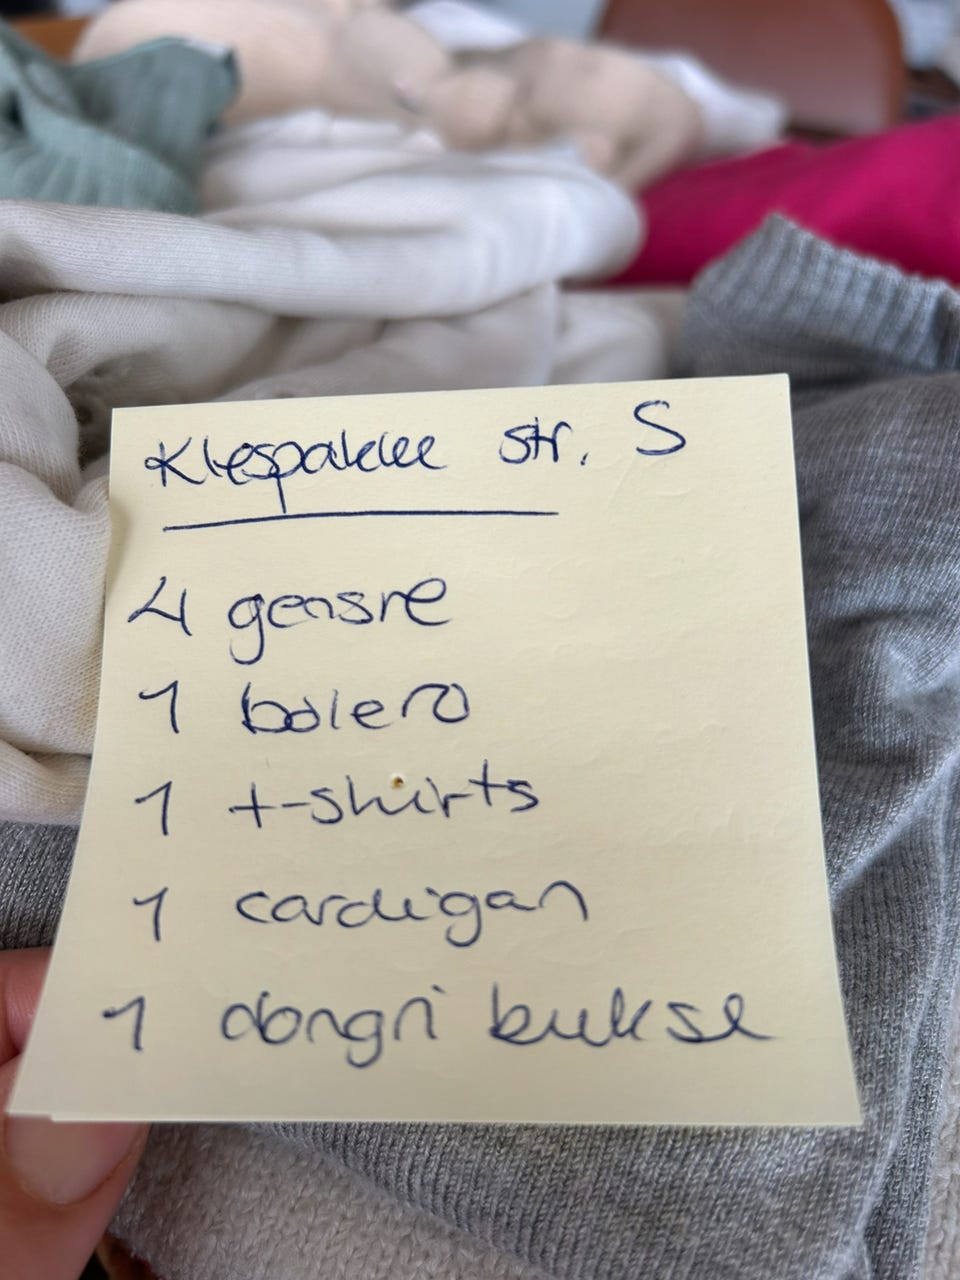 Klespakke str. S
4 gensre
1 bolero
1 t-shirts
1 cardigan
1 dongri bukse